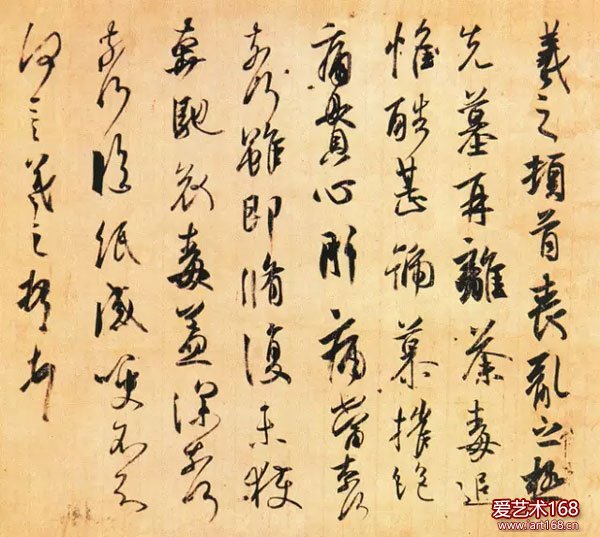 羲之頓首喪亂之極
先墓再離荼毒追
惟酷甚號慕摧絕
痛貫心肝痛當奈何
奈何雖即脩復未獲
奔馳哀毒益深奈何
奈何臨紙感哽不知
何言羲之頓首頓首
爱艺术168
www.1art168.cn